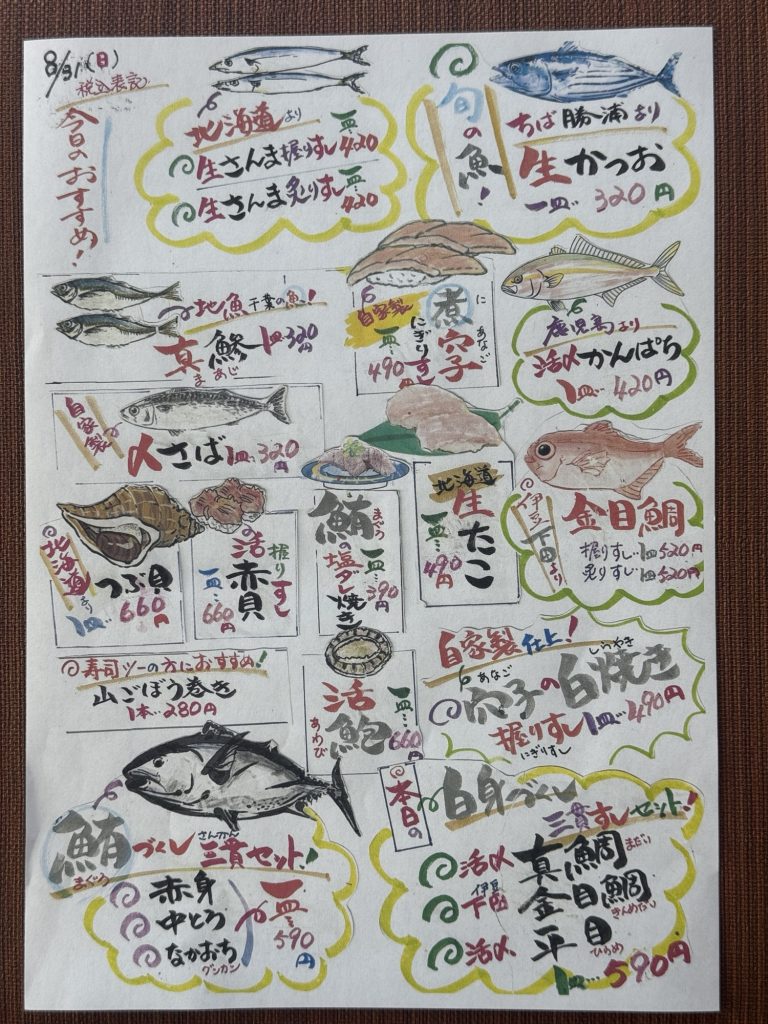 8/31(日)
税込表記
今日のおすすめ!
北海道より
生さんま握りすし 一皿…420
生さんま炙りすし 一皿…420
旬の魚!
ちば勝浦より
生かつお
一皿…320円
地魚 千葉の魚!
真鯵 1皿…320円
まあじ
自家製
煮穴子
に あなご
にぎりすし
一皿…490円
鹿児島より
活〆かんぱち
1皿…420円
自家製
〆さば 1皿…320円
北海道より
つぶ貝
1皿…660円
握りすし
活赤貝
一皿…660円
鮪の塩ダレ焼き
まぐろ
一皿…390円
北海道
生たこ
一皿…490円
伊豆下田より
金目鯛
握りすし…1皿520円
炙りすし…1皿520円
寿司ツーの方におすすめ!
山ごぼう巻き
1本…280円
活鮑
あわび
一皿…660円
自家製仕上!
あなご しらやき
穴子の白焼き
握りすし 1皿…490円
にぎりすし
鮪づくし 三貫セット!
まぐろ さんかん
赤身
中とろ
なかおち
グンカン
一皿…590円
本日の
白身づくし
三貫すしセット!
活〆 真鯛 まだい
伊豆下田 金目鯛 きんめだい
活〆 平目 ひらめ
1皿…590円